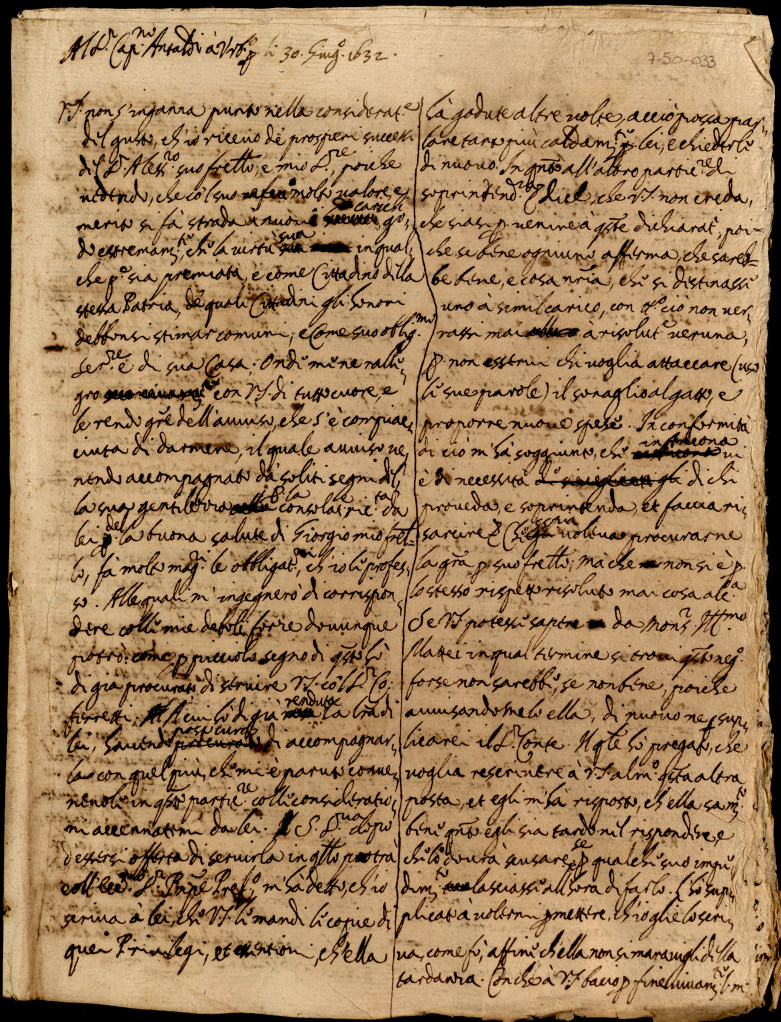 Al S.r Cap.no Antaldi à Urb.o p li 30. Giug.o 1632.
7-50-033
V.S. non s'inganna punto nella considerat.e
del gusto, ch'io ricevo de prosperi successi
del S.r Aless.ro suo fr̃ello, e mio S.re, poiche
vedendo, che co'l suo molto valore, e
merito si fà strada a nuovi carichi go-
do estremam.te, che la virtù sua in qual-
che p.e sia premiata, e come Cittadino della
stessa Patria, de quali Cittadini gli honori
debbonsi stimar comuni, e come suo oblig.mo
Ser.re e di sua Casa. Onde me ne ralle-
gro con V.S. di tutto cuore, e
le rendo gr̃e dell'avviso, che s'è compiac-
ciuta di darmene, il quale avviso ve-
nendo accompagnato da soliti segni del-
la sua gentilezza consolat.e da
lei p la buona salute di Giorgio mio frel-
lo, fà molto mag.ri le obbligat.ni ch'io le profes-
so. Alle quali m'ingegnerò di corrispon-
dere colle mie deboli forze dovunque
potrò: come p picciolo segno di q̃sto hò
di già procurato di servire V.S. co'l S.r Co:
Al cui hò di già renduta la l̃ra di
lei, havend di accompagnar-
la con quel più, che mi è paruto conve-
nevole in q̃sto partic.re colle consideratio-
ni accennatemi da lei. S. S.ria dopo
d'essersi offerta di servirla in q̃llo potrà
coll' S.r Prñpe Pref.o m'hà detto, ch'io
scriva à lei, che V.S. le mandi le copie di
quei Privilegi, et essentioni, ch'ella
hà godute altre volte, acciò possa par-
lare tanto più caldam.te p lei, e chiederle
di nuovo. In q.to all'altro partic.re di
soprintend.te che V.S. non creda,
che siasi p venire à q̃ste dichiarat.i, poi-
che se bene ogniuno afferma, che sareb-
be bene, e cosa nr̃ia, che si destinassi
uno a simil carico, con t.o ciò non ver-
rassi mai à risolut.e veruna,
p non esservi chi voglia attaccare (uso
le sue parole) il sonaglio al gatto, e
proporre nuove spese. In conformità
di ciò m'hà soggiunto, che in Ancona vi
è necessità di chi
proveda, e soprintenda, et faccia ri-
sarcire p voleva procurarne
la gr̃a p suo fr̃ello; mà che non si è p
lo stesso rispetto risoluto mai cosa alc.a
Se V.S. potessi sapere da Mons.r Ill.mo
Mattei in qual termine si trovi q̃sto neg.o
forse non sarebbe, se non bene, poiche
avvisandomelo ella, di nuovo ne sup-
plicarei il S.r Conte. Il q̃le hò pregato, che
voglia rescrivere à V.S. alm.o q̃sta altra
posta, et egli m'hà risposto, ch'ella sà m.to
bene q.to egli sia tardo nel rispondere, e
che lo dovrà scusare, se p qualche suo impe-
dim.to lasciassi all'hora di farlo. L'hò sup-
plicato à volermi pmettere, ch'io glie lo scri-
va, come fò, affine ch'ella non si maravigli della
tardanza. Con che à V.S. bacio p fine vivam.te l. m.